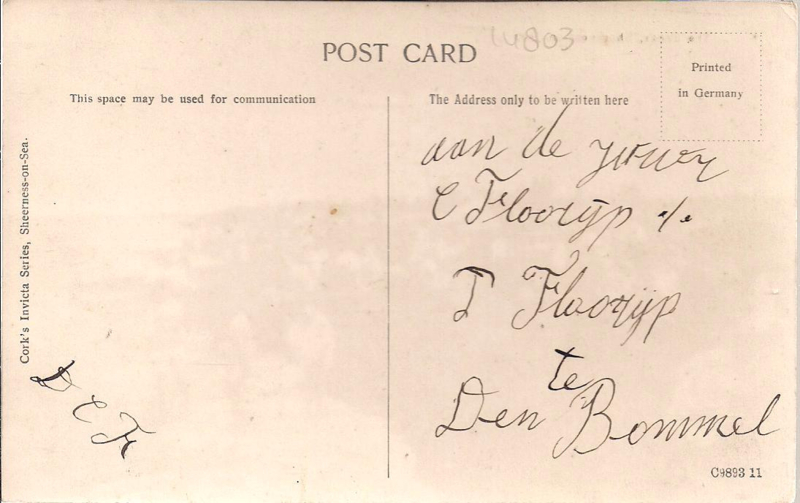 1W803
POST CARD
Printed
in Germany
This space may be used for communication
The Address only to be written here
aan de
C Floorijp %
T Floorijp
te
Den Bommel
D C F
Cork's Invicta Series, Sheerness-on-Sea.
C9893 11